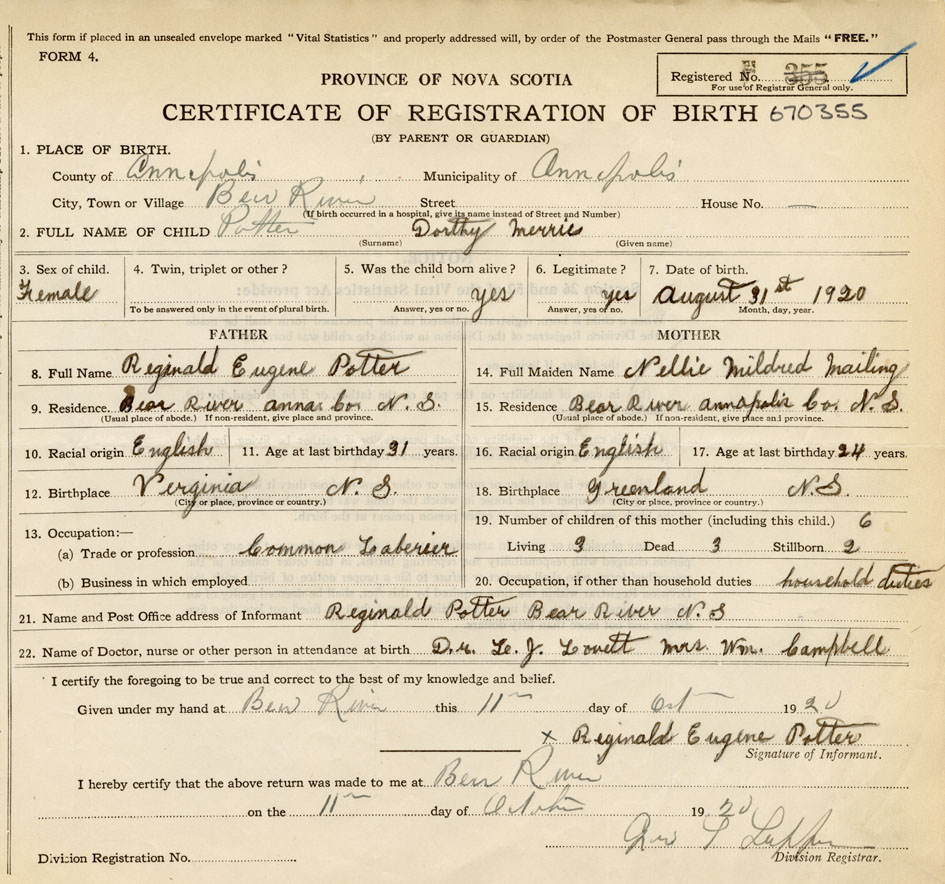 This form if placed in an unsealed envelope marked "Vital Statistics" and properly addressed will, by order of the Postmaster General pass through the Mails "FREE."
FORM 4.
Registered No. 355
For use of Registrar General only.
PROVINCE OF NOVA SCOTIA
CERTIFICATE OF REGISTRATION OF BIRTH 670355
(BY PARENT OR GUARDIAN)
1. PLACE OF BIRTH.
County of Annapolis Municipality of Annapolis
City, Town or Village Bear River Street House No. —
(If birth occurred in a hospital, give its name instead of Street and Number)
2. FULL NAME OF CHILD Potter Dorthy Merrie
(Surname) (Given name)
3. Sex of child. 4. Twin, triplet or other? 5. Was the child born alive? 6. Legitimate? 7. Date of birth.
Female yes yes August 31st 1920
To be answered only in the event of plural birth. Answer, yes or no. Answer, yes or no. Month, day, year.
FATHER MOTHER
8. Full Name Reginald Eugene Potter 14. Full Maiden Name Nellie Mildred Mailing
9. Residence. Bear River anna. Co. N. S. 15. Residence Bear River annapolis Co. N. S.
(Usual place of abode.) If non-resident, give place and province. (Usual place of abode.) If non-resident, give place and province.
10. Racial origin English 11. Age at last birthday 31 years. 16. Racial origin English 17. Age at last birthday 24 years.
12. Birthplace Verginia N. S. 18. Birthplace Greenland N.S.
(City or place, province or country.) (City or place, province or country.)
13. Occupation:— 19. Number of children of this mother (including this child.) 6
(a) Trade or profession Common Laberier Living 3 Dead 3 Stillborn 2
(b) Business in which employed 20. Occupation, if other than household duties household duties
21. Name and Post Office address of Informant Reginald Potter Bear River N. S
22. Name of Doctor, nurse or other person in attendance at birth Dr. L. J. Lovett Mrs. Wm. Campbell
I certify the foregoing to be true and correct to the best of my knowledge and belief.
Given under my hand at Bear River this 11th day of Oct 1920
x Reginald Eugene Potter
Signature of Informant.
I hereby certify that the above return was made to me at Bear River
on the 11th day of October 1920
Division Registration No. Division Registrar.